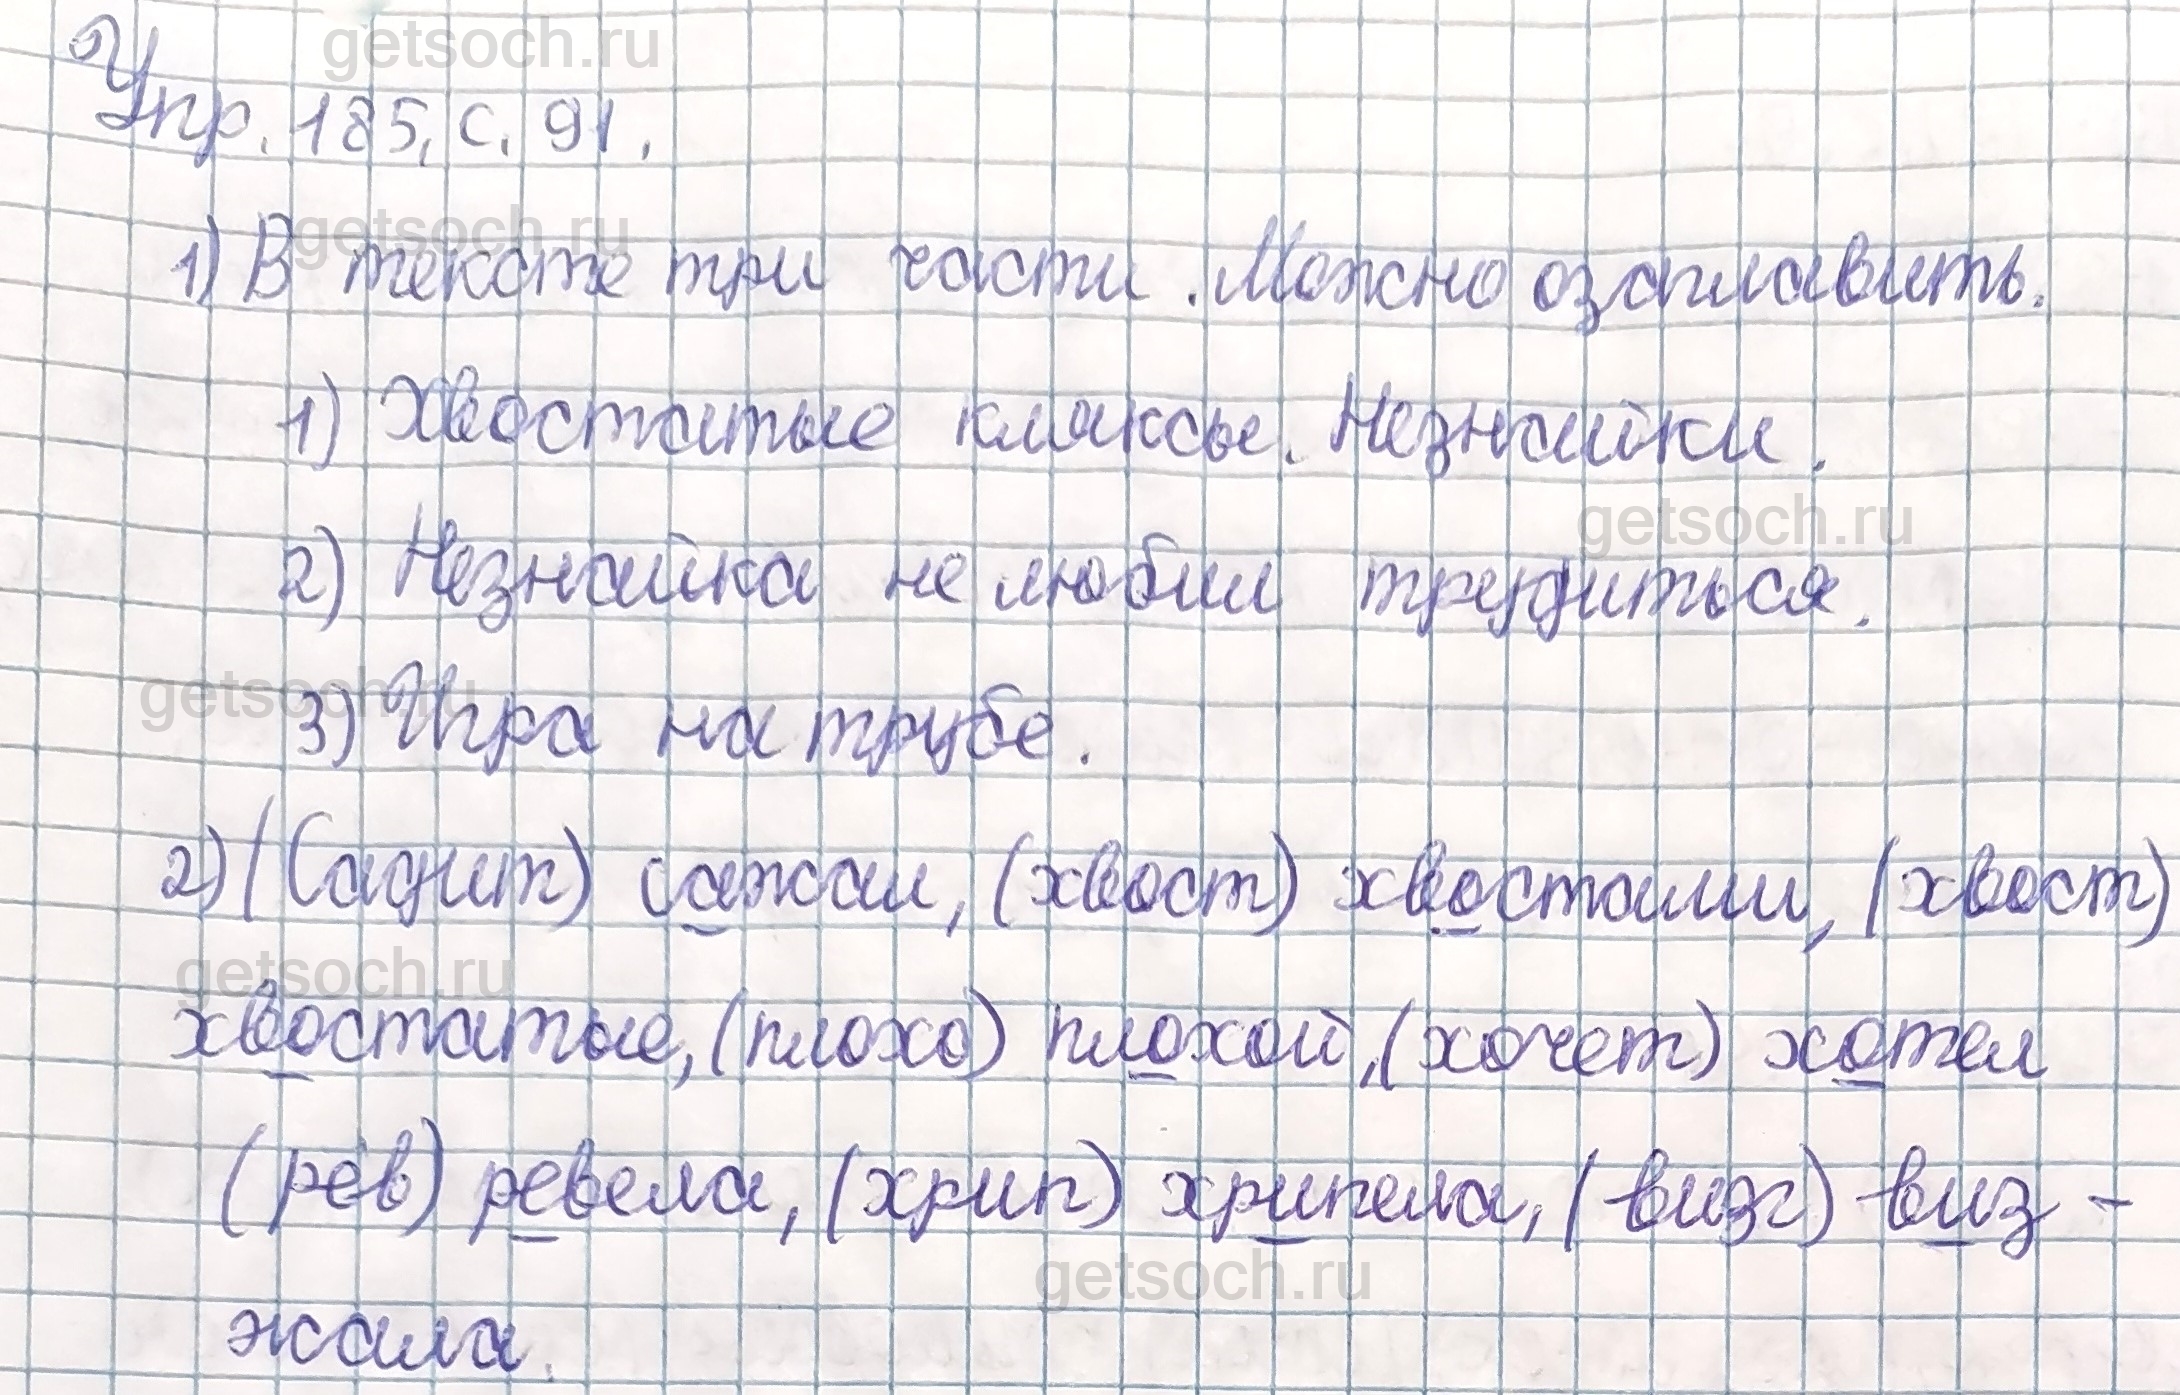 getsoch.ru
Упр. 185, с. 91.
getsoch.ru
1) В тексте три части. Можно озаглавить.
1) Хвостатые кляксы. Незнайки.
getsoch.ru
2) Незнайка не любил трудиться.
getsoch.ru
3) Игра на трубе.
2) (садит) сажал, (хвост) хвостами, (хвост)
getsoch.ru
хвостатые, (плохо) плохой, (хочет) хотел
(рёв) ревела, (хрип) хрипела, (визг) виз-
getsoch.ru
жала.